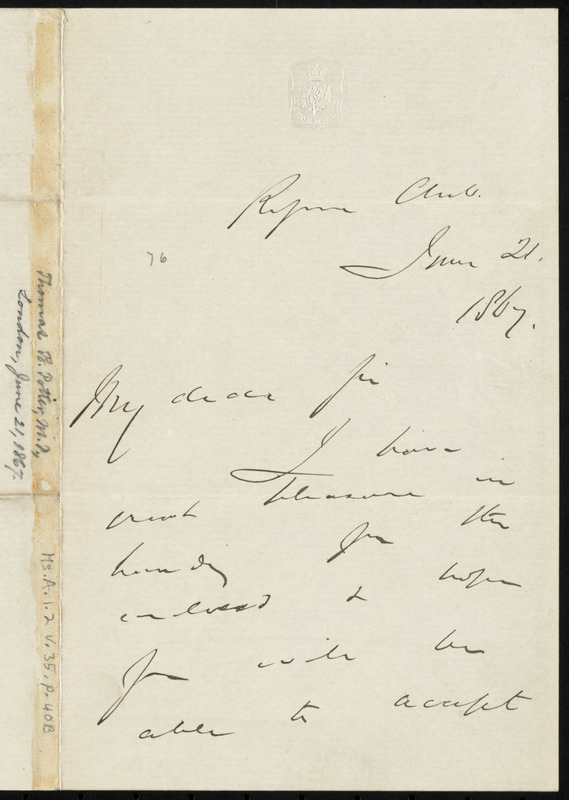 Reform Club.
June 21.
1867.
76
My dear Sir
I have
great pleasure in
handing you the
enclosed & hope
you will be
able to accept
Thomas B. Potter, M.P.,
London, June 21, 1867.
Ms. A. 1. 2 v. 35, p. 40B